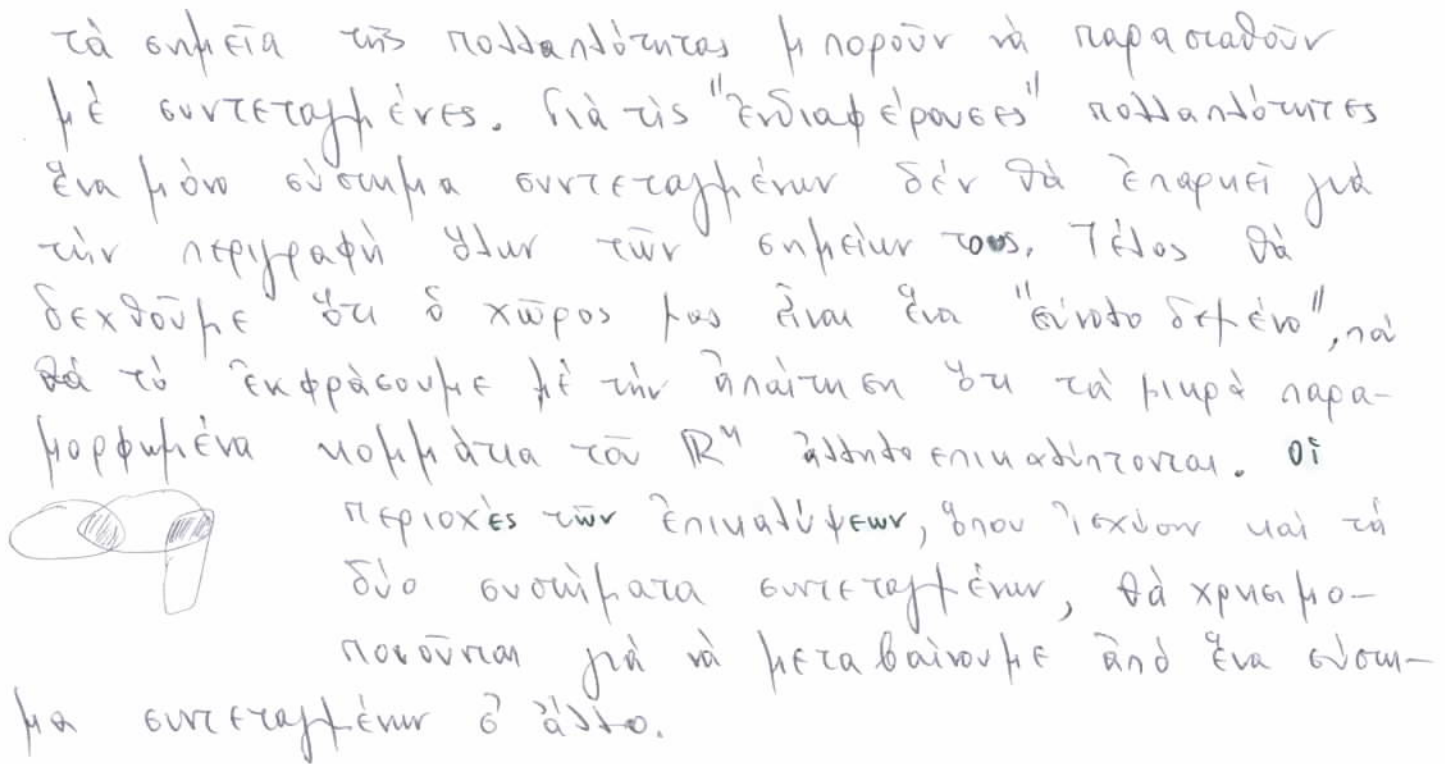 τὰ σημεῖα τῆς πολλαπλότητας μποροῦν νὰ παρασταθοῦν
μὲ συντεταγμένες. Γιὰ τὶς "ἐνδιαφέρουσες" πολλαπλότητες
ἕνα μόνο σύστημα συντεταγμένων δέν θὰ ἐπαρκεῖ γιὰ
τὴν περιγραφὴ ὅλων τῶν σημείων τους. Τέλος θὰ
δεχθοῦμε ὅτι ὁ χῶρος μας εἶναι ἕνα "σύνολο δεμένο",
θὰ τὸ ἐκφράσουμε μὲ τὴν ἀπαίτηση ὅτι τὰ μικρὰ παρα-
μορφωμένα κομμάτια τοῦ ℝⁿ ἀλληλοεπικαλύπτονται. Οἱ
περιοχὲς τῶν ἐπικαλύψεων, ὅπου ἰσχύουν καὶ τὰ
δύο συστήματα συντεταγμένων, θὰ χρησιμο-
ποιοῦνται γιὰ νὰ μεταβαίνουμε ἀπὸ ἕνα σύστη-
μα συντεταγμένων σ' ἄλλο.